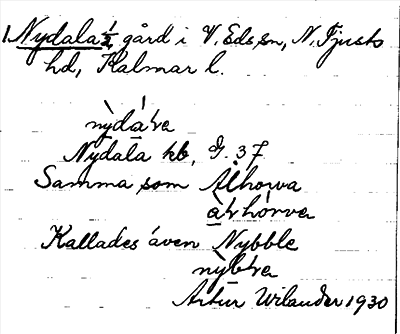 1. Nydala ½, gård i V. Eds sn, N. Tjusts
hd, Kalmar l.
nỳdáⱡa
Nydala kb, G. 37
Samma som Ålhorva
Kallades även Nybble
Artur Wilander 1930